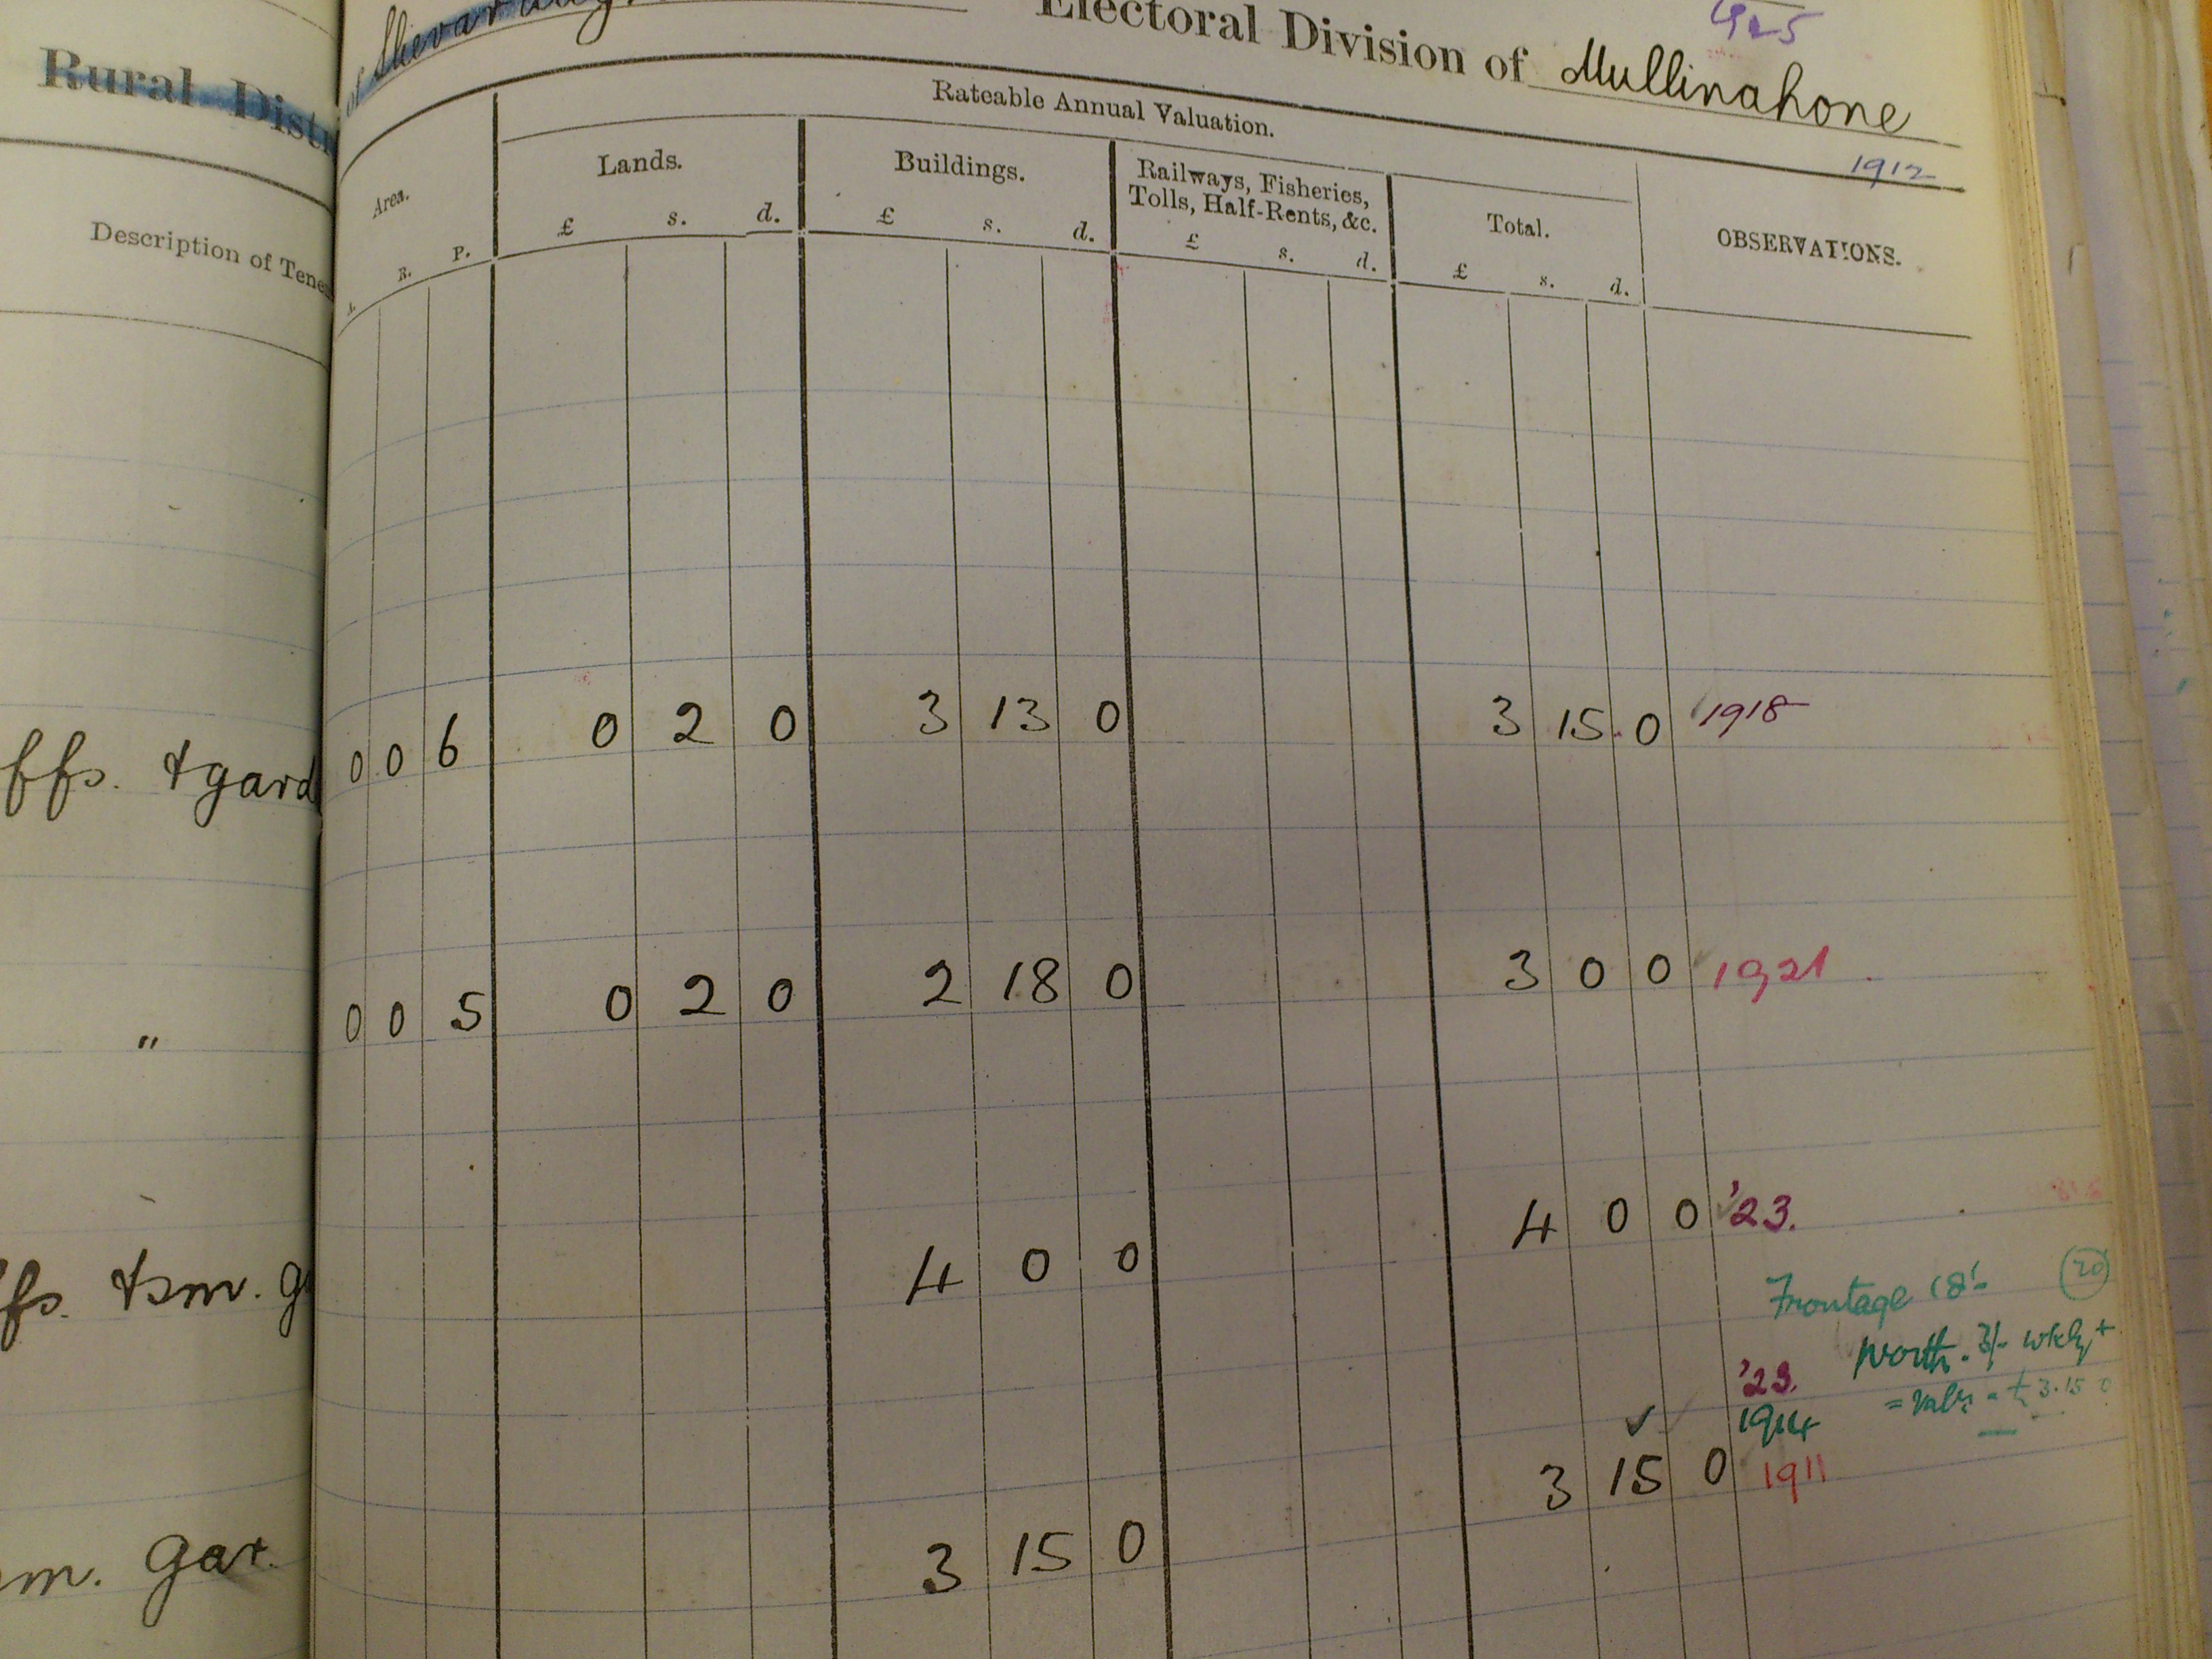 Rural Distr
Description of Tene
ffs. & gard
"
fs. & sm. g
m. Gar.
1925
Electoral Division of Mullinahone
1912
Area. Rateable Annual Valuation. OBSERVATIONS.
Lands. Buildings. Railways, Fisheries, Tolls, Half-Rents, &c. Total.
A. R. P. £ s. d. £ s. d. £ s. d. £ s. d.
0 0 6 0 2 0 3 13 0 3 15 0 1918
0 0 5 0 2 0 2 18 0 3 0 0 1921
4 0 0 4 0 0 '23.
Frontage 18' 20
worth 3/- wkly +
'23. = valn 3.15 0
1914
3 15 0 3 15 0 1911